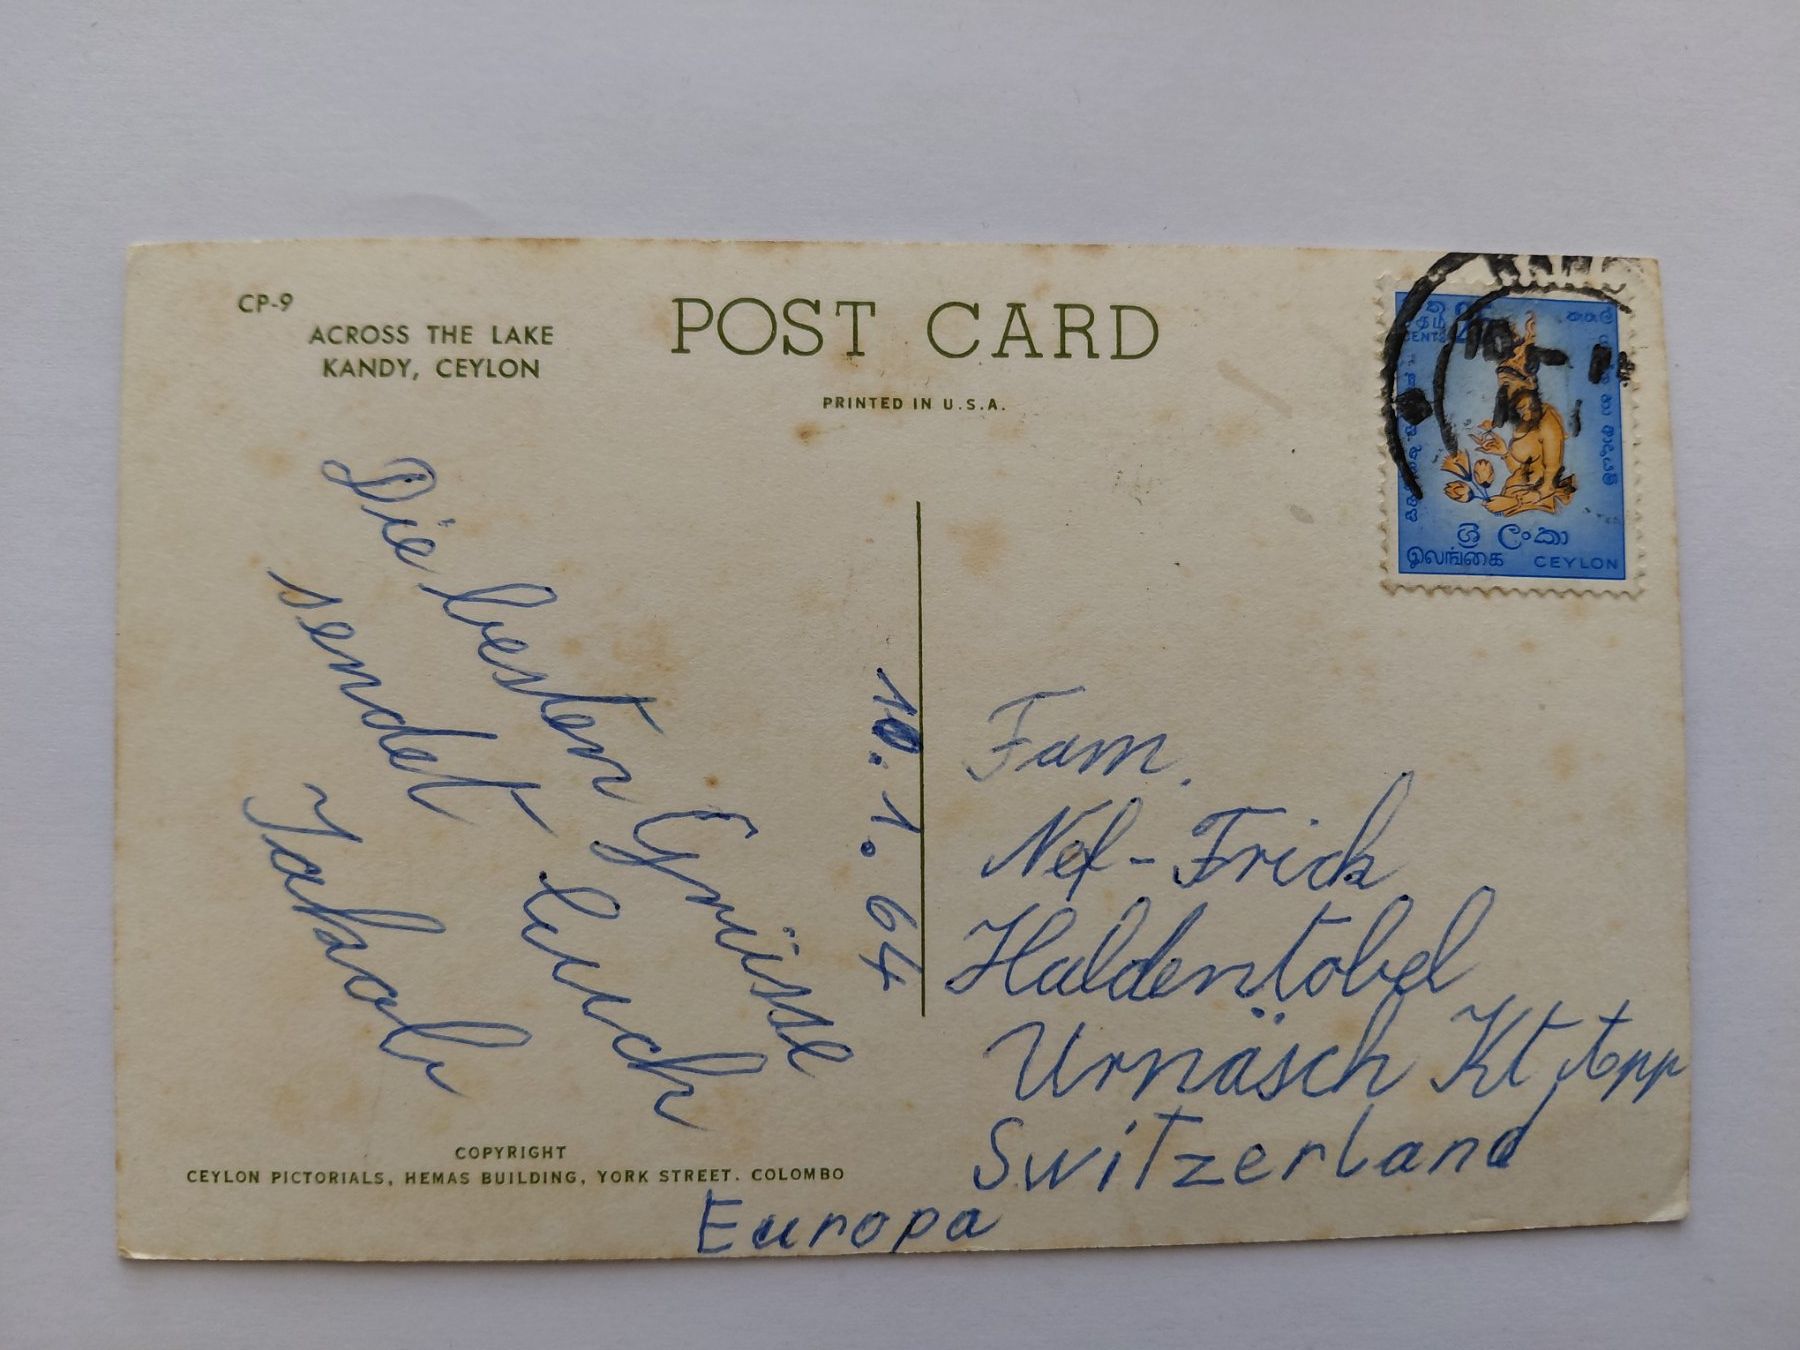 CP-9
ACROSS THE LAKE
KANDY, CEYLON
POST CARD
PRINTED IN U.S.A.
CENTS
ශ්‍රී ලංකා
இலங்கை CEYLON
Die besten Grüsse
sendet Euch
Jakob
10.1.64
Fam.
Nef-Frick
Haldentobel
Urnäsch Kt App
Switzerland
Europa
COPYRIGHT
CEYLON PICTORIALS, HEMAS BUILDING, YORK STREET. COLOMBO